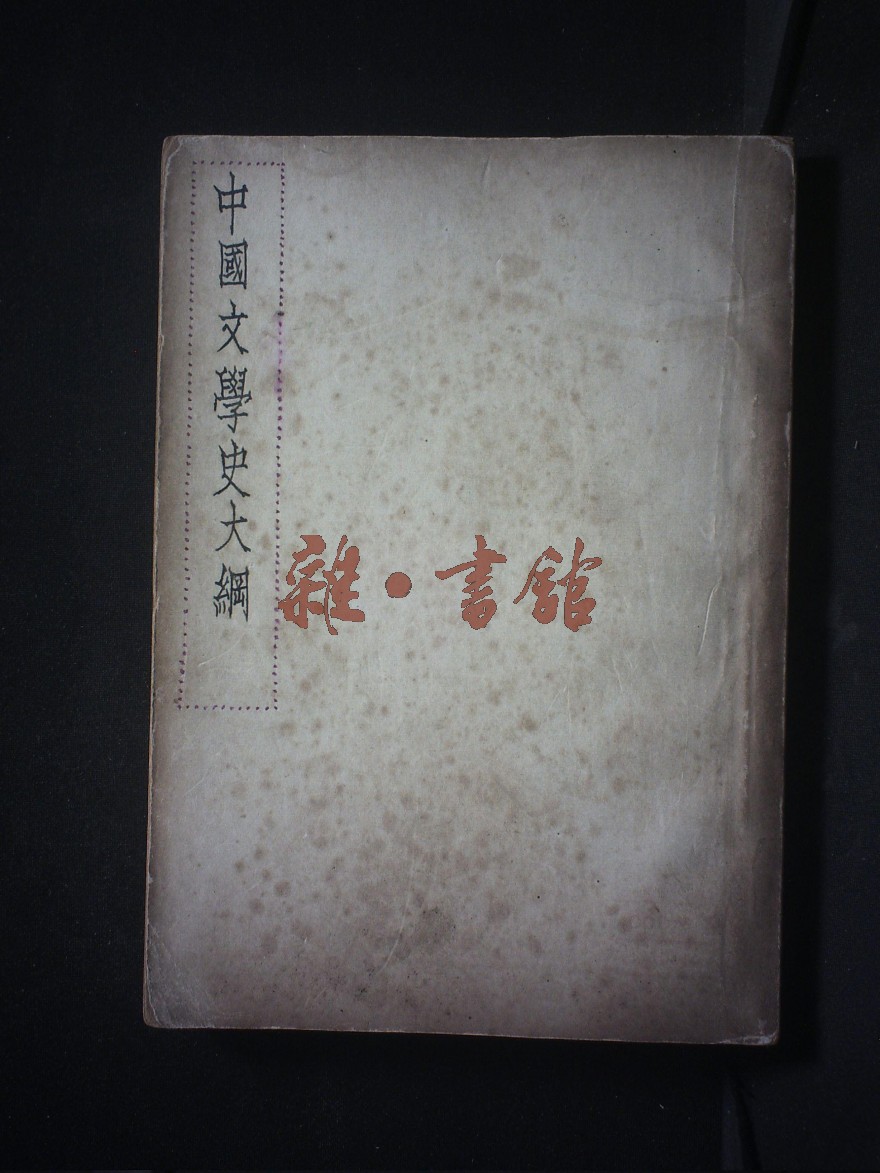 中國文學史大綱
雜·書館